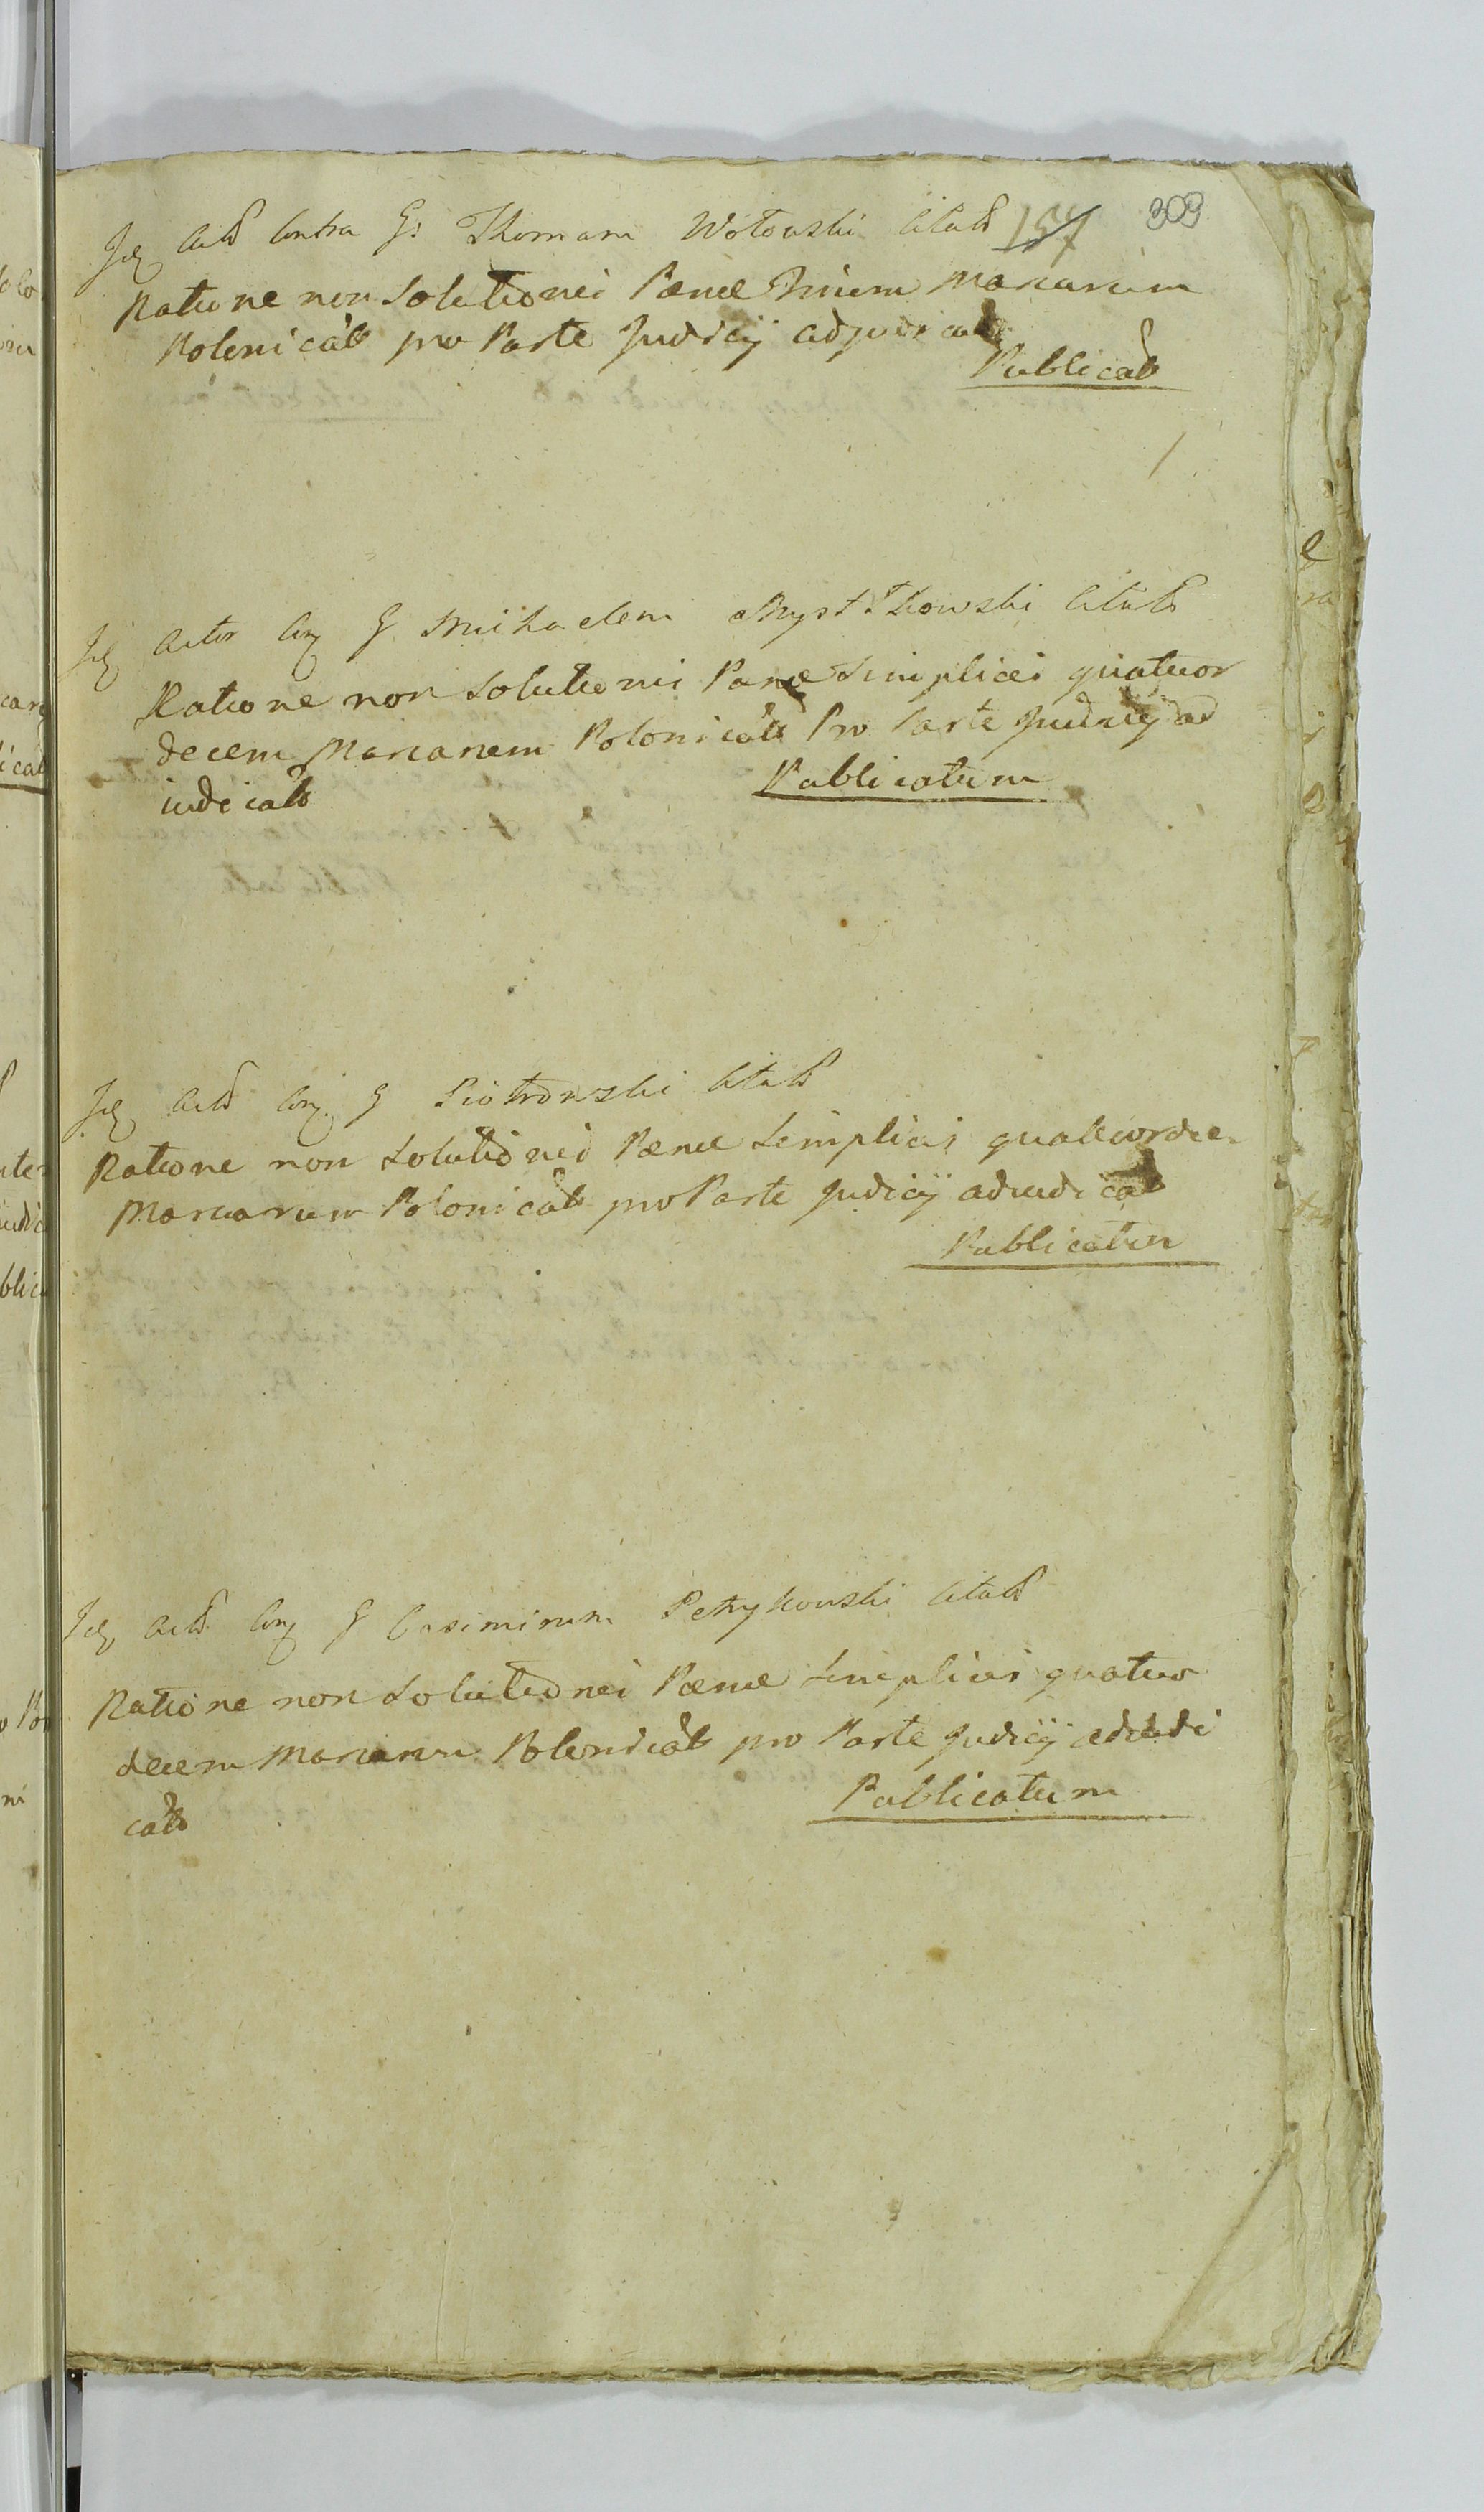 Idẽ Actõ Contra Gs Thomam Wołowski Citatõ 157 309
Ratione non Solutionis Pænæ Trium Marcarum
Polonicalõ pro Parte Judicij adjudicatõ
Publicatõ
Idẽ Actor Con G Michaelem Citatõ
Ratione non Solutionis Pænæ Simplicis quatuor
decem Marcarum Polonicalõ Pro Parte Judicij ad
iudicatõ Publicatum
Idẽ Actõ Con G Piotrowski Citatõ
Ratione non Solutionis Pænæ Simplicis quatuordce
Marcarum Polonicalõ pro Parte Judicij adiudicatõ
Publicatum
Idẽ Actõ Con G Casimirum Petrykowski Citatõ
Ratione non Solutionis Pænæ Simplicis quatuor
decem Marcarum Polonicalõ pro Parte Judicij adiudi
catõ Publicatum